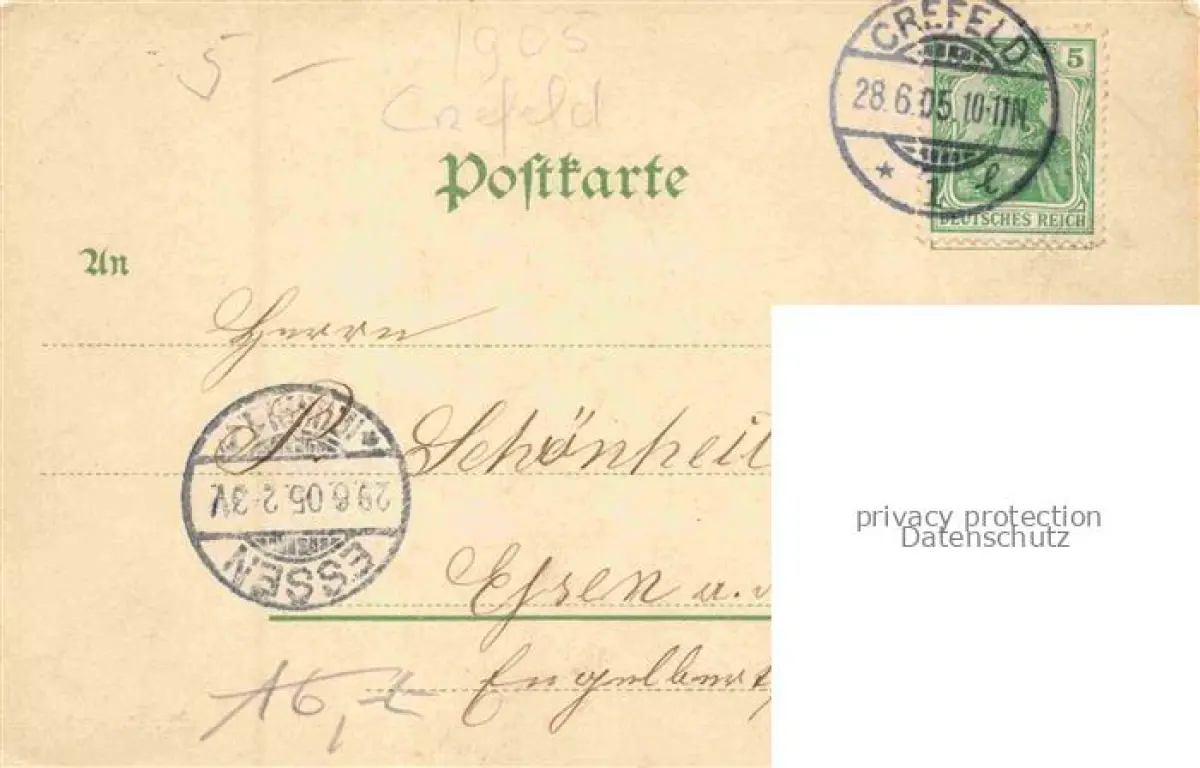 5 — 1905
Crefeld
CREFELD
28.6.05. 10-11N.
* 1 l
5
DEUTSCHES REICH
Poſtkarte
An
Herrn
P. Schönheit
Essen a.
Engelbert
ESSEN
29.6.05. 2-3V.
16,-
privacy protection
Datenschutz